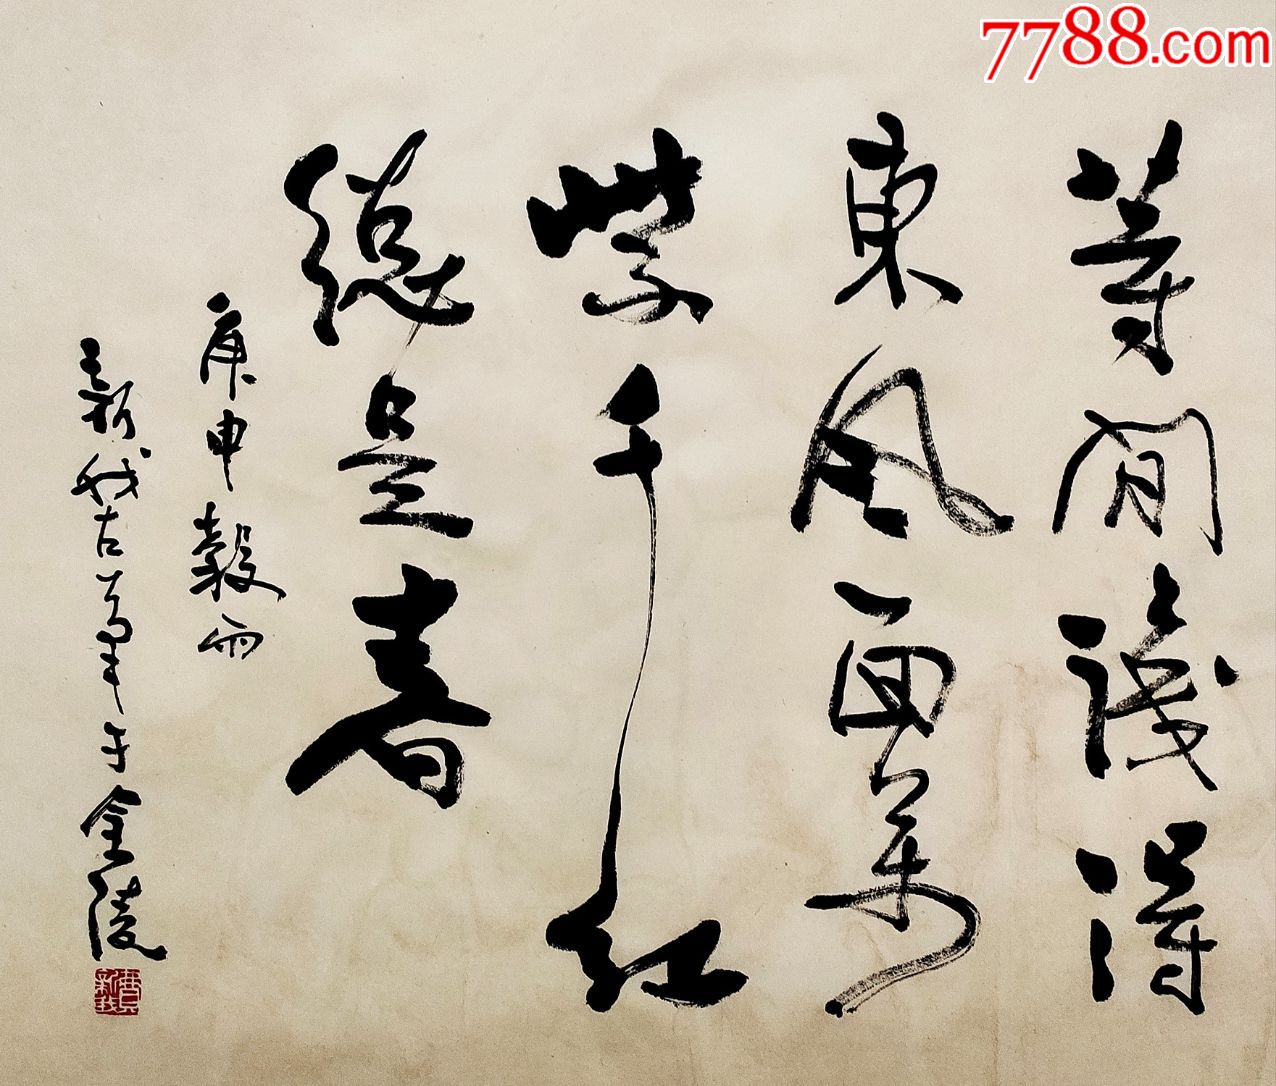 7788.com
等閒識得
東風面萬
紫千紅
總是春
庚申穀雨
新我左筆于金陵